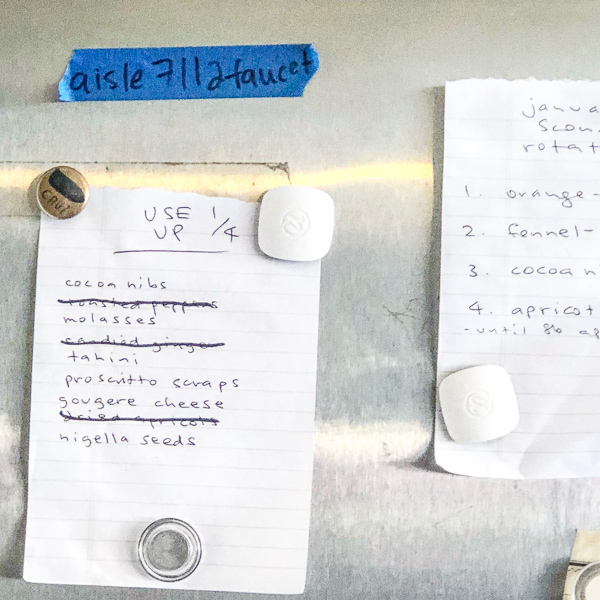 aisle 7112faucet
USE 1/4
UP
cocoa nibs
roasted peppers
molasses
candied ginger
tahini
proscritto scraps
gougere cheese
dried apricots
nigella seeds
janua
scon
rotat
1. orange-
2. fennel-
3. cocoa n
4. apricot
-until 86